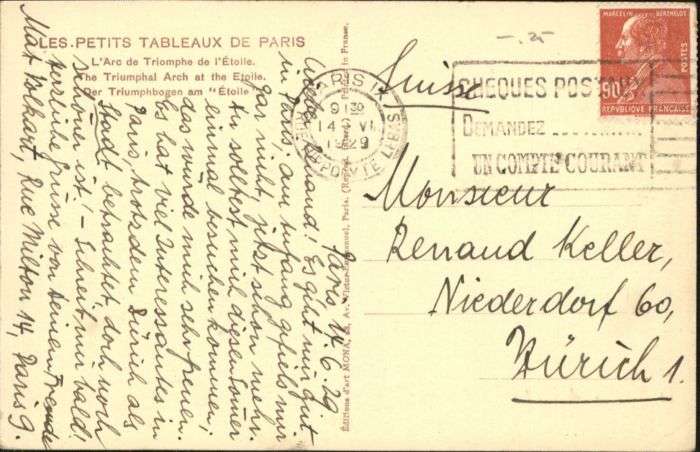 LES PETITS TABLEAUX DE PARIS
L'Arc de Triomphe de l'Étoile.
The Triumphal Arch at the Etoile.
Der Triumphbogen am "Étoile
Paris 14.6.29
Lieber Renaud! Es geht mir gut
in Paris, am anfang gefiels mir
gar nicht, jetzt schon mehr.
Du solltest mich diesen Somer
einmal besuchen kommen,
das würde mich sehr freuen.
Es hat viel Interessantes in
Paris, trotzdem Zürich als
Stadt betrachtet doch noch
schöner ist! - Schreib mir bald!
herzliche Grüsse von deinem Freunde
Max Volkart, Rue Milton 14, Paris 9.
Editions d'art MONA, Av. Paris. in France.
PARIS IX
9 30
14 VI
1929
Suisse
-.25
CHEQUES POSTAUX
DEMANDEZ
UN COMPTE COURANT
MARCELIN BERTHELOT
POSTES
90c
RÉPUBLIQUE FRANÇAISE
Monsieur
Renaud Keller,
Niederdorf 60,
Zürich 1.